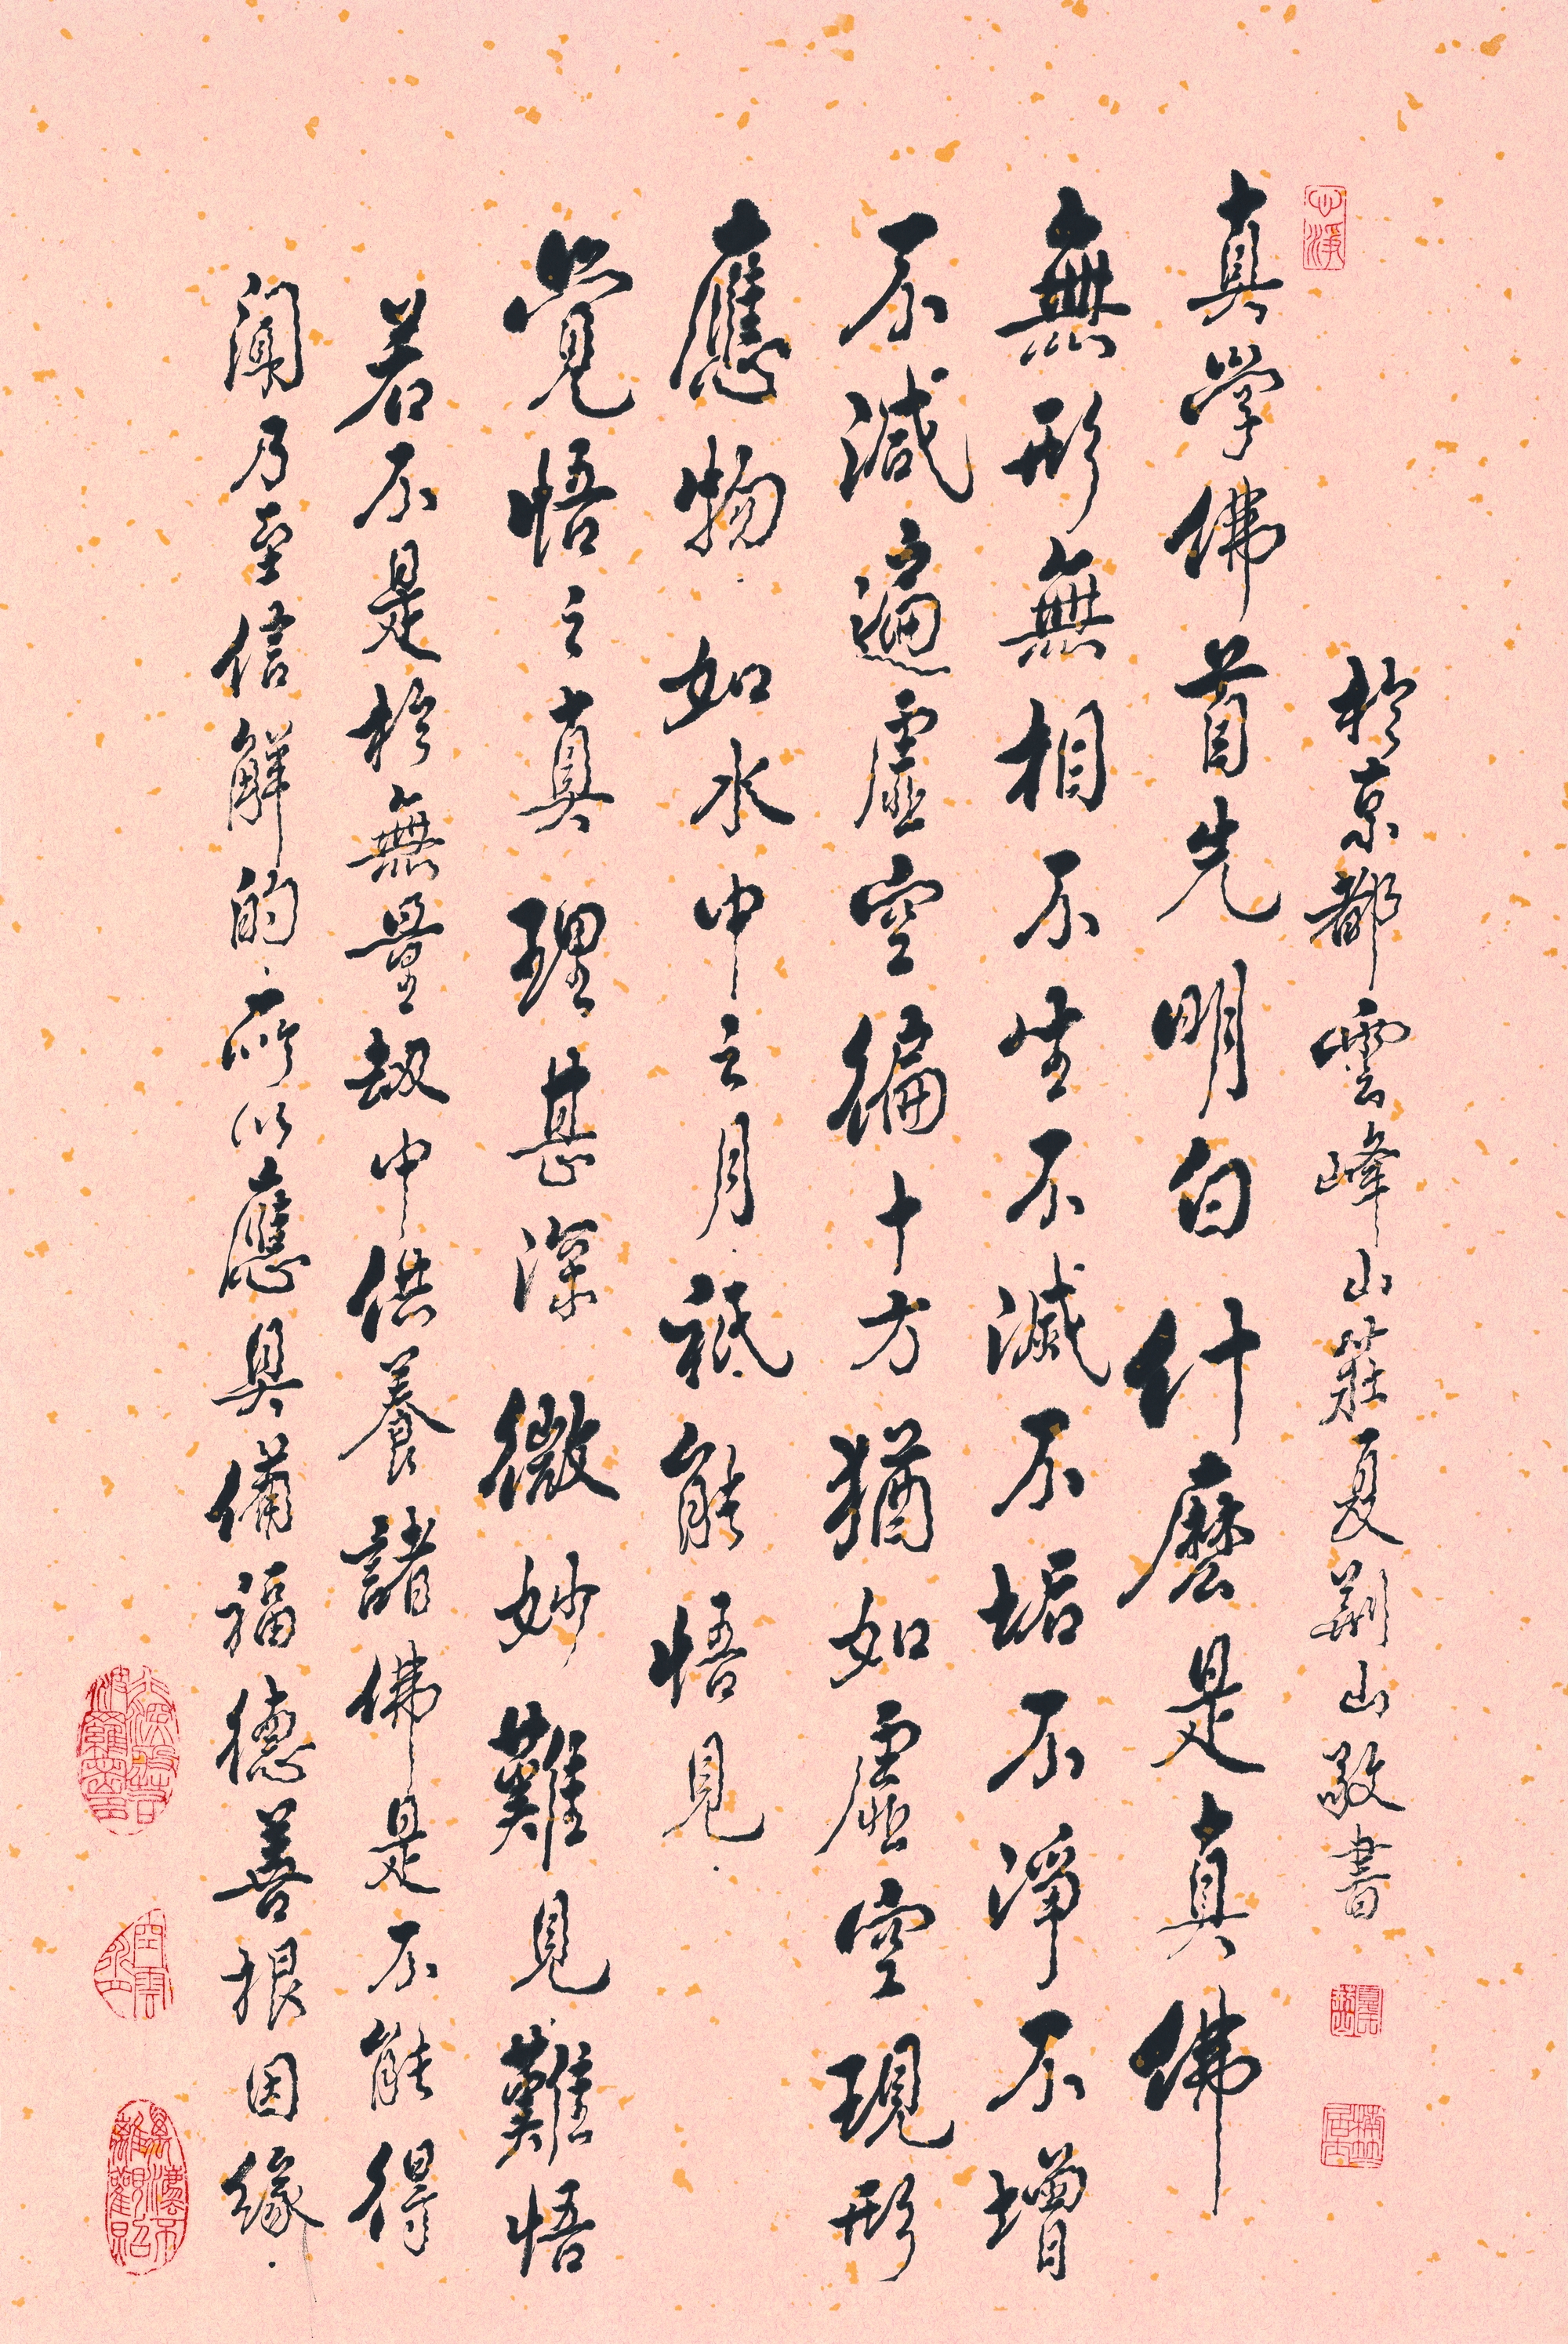 心淨
於京都雲峰山莊夏荊山敬書
真學佛首先明白什麼是真佛
無形無相不生不滅不垢不淨不增
不減遍虛空徧十方猶如虛空現形
應物如水中之月祗能悟見
覺悟之真理甚深微妙難見難悟
若不是於無量劫中供養諸佛是不能得
聞乃至信解的所以應具備福德善根因緣